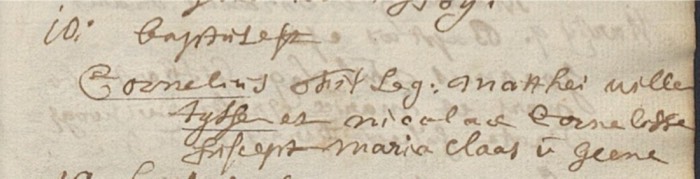 10: baptus est
Cornelius filius leg: Matthei wille
tysse et nicolaae Cornelisse
suscept Maria Claas v geene